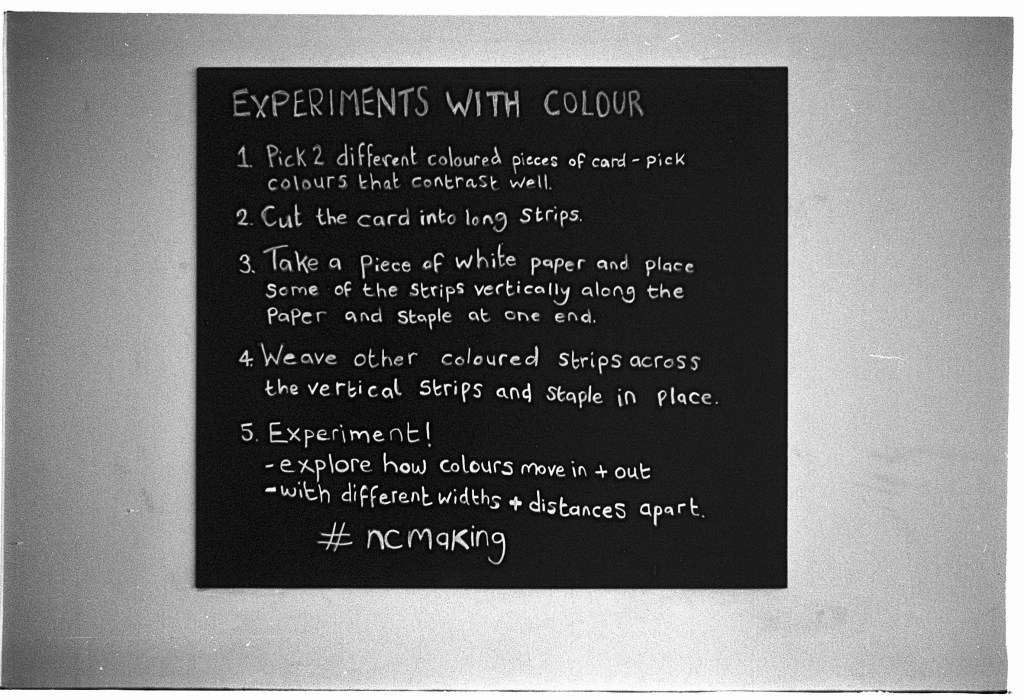 EXPERIMENTS WITH COLOUR
1. Pick 2 different coloured pieces of card - pick
colours that contrast well.
2. Cut the card into long strips.
3. Take a piece of white paper and place
some of the strips vertically along the
paper and staple at one end.
4. Weave other coloured strips across
the vertical strips and staple in place.
5. Experiment!
- explore how colours move in + out
- with different widths + distances apart.
# ncmaking